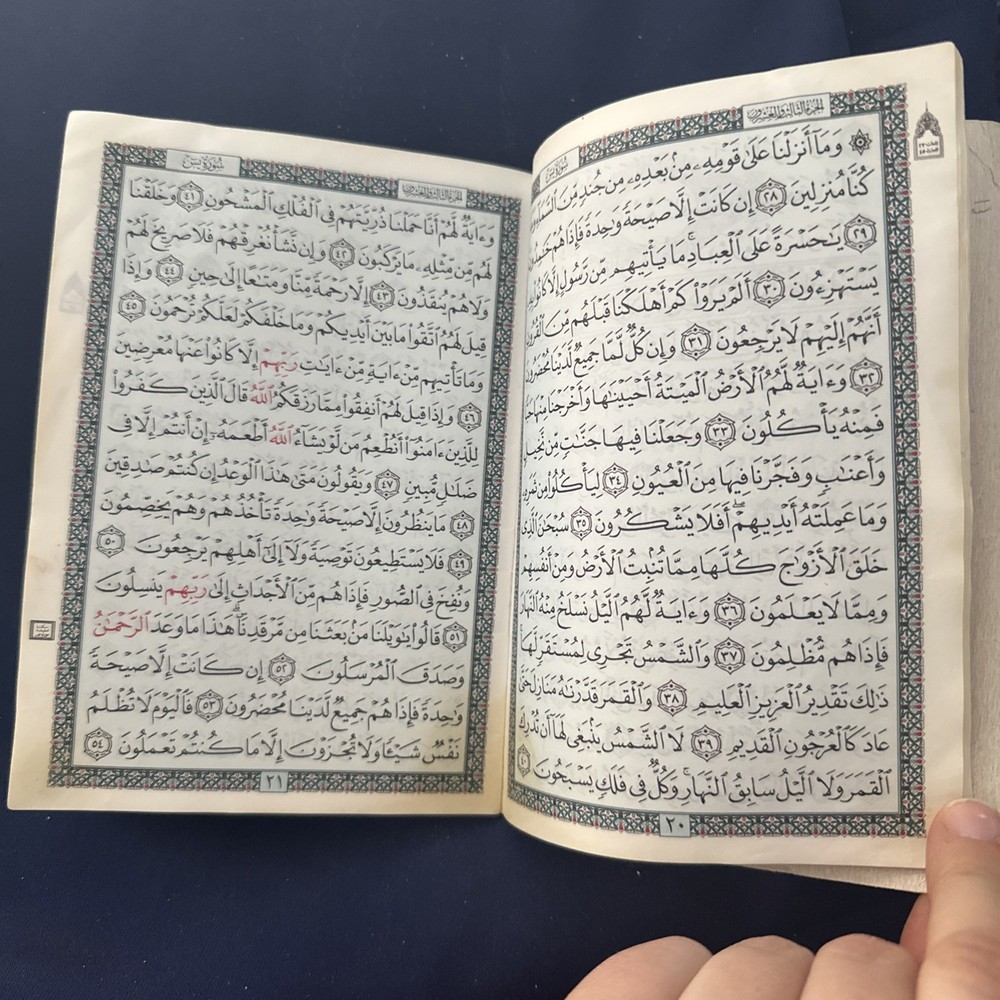 الجزء الثالث والعشرون
سورة يس
۞ وَمَآ أَنزَلْنَا عَلَىٰ قَوْمِهِۦ مِنۢ بَعْدِهِۦ مِن جُندٍ مِّنَ
كُنَّا مُنزِلِينَ ٢٨ إِن كَانَتْ إِلَّا صَيْحَةً وَٰحِدَةً فَإِذَا هُمْ
٢٩ يَٰحَسْرَةً عَلَى ٱلْعِبَادِ ۚ مَا يَأْتِيهِم مِّن رَّسُولٍ إِلَّا كَانُوا۟
يَسْتَهْزِءُونَ ٣٠ أَلَمْ يَرَوْا۟ كَمْ أَهْلَكْنَا قَبْلَهُم مِّنَ
أَنَّهُمْ إِلَيْهِمْ لَا يَرْجِعُونَ ٣١ وَإِن كُلٌّ لَّمَّا جَمِيعٌ لَّدَيْنَا مُحْضَرُونَ
٣٢ وَءَايَةٌ لَّهُمُ ٱلْأَرْضُ ٱلْمَيْتَةُ أَحْيَيْنَٰهَا وَأَخْرَجْنَا مِنْهَا
فَمِنْهُ يَأْكُلُونَ ٣٣ وَجَعَلْنَا فِيهَا جَنَّٰتٍ مِّن نَّخِيلٍ
وَأَعْنَٰبٍ وَفَجَّرْنَا فِيهَا مِنَ ٱلْعُيُونِ ٣٤ لِيَأْكُلُوا۟ مِن ثَمَرِهِۦ
وَمَا عَمِلَتْهُ أَيْدِيهِمْ ۖ أَفَلَا يَشْكُرُونَ ٣٥ سُبْحَٰنَ ٱلَّذِى
خَلَقَ ٱلْأَزْوَٰجَ كُلَّهَا مِمَّا تُنۢبِتُ ٱلْأَرْضُ وَمِنْ أَنفُسِهِمْ
وَمِمَّا لَا يَعْلَمُونَ ٣٦ وَءَايَةٌ لَّهُمُ ٱلَّيْلُ نَسْلَخُ مِنْهُ ٱلنَّهَارَ
فَإِذَا هُم مُّظْلِمُونَ ٣٧ وَٱلشَّمْسُ تَجْرِى لِمُسْتَقَرٍّ لَّهَا
ذَٰلِكَ تَقْدِيرُ ٱلْعَزِيزِ ٱلْعَلِيمِ ٣٨ وَٱلْقَمَرَ قَدَّرْنَٰهُ مَنَازِلَ حَتَّىٰ
عَادَ كَٱلْعُرْجُونِ ٱلْقَدِيمِ ٣٩ لَا ٱلشَّمْسُ يَنۢبَغِى لَهَآ أَن تُدْرِكَ
ٱلْقَمَرَ وَلَا ٱلَّيْلُ سَابِقُ ٱلنَّهَارِ ۚ وَكُلٌّ فِى فَلَكٍ يَسْبَحُونَ ٤٠
٢٠
الجزء الثالث والعشرون
سورة يس
وَءَايَةٌ لَّهُمْ أَنَّا حَمَلْنَا ذُرِّيَّتَهُمْ فِى ٱلْفُلْكِ ٱلْمَشْحُونِ ٤١ وَخَلَقْنَا
لَهُم مِّن مِّثْلِهِۦ مَا يَرْكَبُونَ ٤٢ وَإِن نَّشَأْ نُغْرِقْهُمْ فَلَا صَرِيخَ لَهُمْ
وَلَا هُمْ يُنقَذُونَ ٤٣ إِلَّا رَحْمَةً مِّنَّا وَمَتَٰعًا إِلَىٰ حِينٍ ٤٤ وَإِذَا
قِيلَ لَهُمُ ٱتَّقُوا۟ مَا بَيْنَ أَيْدِيكُمْ وَمَا خَلْفَكُمْ لَعَلَّكُمْ تُرْحَمُونَ ٤٥
وَمَا تَأْتِيهِم مِّنْ ءَايَةٍ مِّنْ ءَايَٰتِ رَبِّهِمْ إِلَّا كَانُوا۟ عَنْهَا مُعْرِضِينَ
٤٦ وَإِذَا قِيلَ لَهُمْ أَنفِقُوا۟ مِمَّا رَزَقَكُمُ ٱللَّهُ قَالَ ٱلَّذِينَ كَفَرُوا۟
لِلَّذِينَ ءَامَنُوٓا۟ أَنُطْعِمُ مَن لَّوْ يَشَآءُ ٱللَّهُ أَطْعَمَهُۥٓ إِنْ أَنتُمْ إِلَّا فِى
ضَلَٰلٍ مُّبِينٍ ٤٧ وَيَقُولُونَ مَتَىٰ هَٰذَا ٱلْوَعْدُ إِن كُنتُمْ صَٰدِقِينَ
٤٨ مَا يَنظُرُونَ إِلَّا صَيْحَةً وَٰحِدَةً تَأْخُذُهُمْ وَهُمْ يَخِصِّمُونَ
٤٩ فَلَا يَسْتَطِيعُونَ تَوْصِيَةً وَلَآ إِلَىٰٓ أَهْلِهِمْ يَرْجِعُونَ ٥٠
وَنُفِخَ فِى ٱلصُّورِ فَإِذَا هُم مِّنَ ٱلْأَجْدَاثِ إِلَىٰ رَبِّهِمْ يَنسِلُونَ
٥١ قَالُوا۟ يَٰوَيْلَنَا مَنۢ بَعَثَنَا مِن مَّرْقَدِنَا ۜ ۗ هَٰذَا مَا وَعَدَ ٱلرَّحْمَٰنُ
وَصَدَقَ ٱلْمُرْسَلُونَ ٥٢ إِن كَانَتْ إِلَّا صَيْحَةً
وَٰحِدَةً فَإِذَا هُمْ جَمِيعٌ لَّدَيْنَا مُحْضَرُونَ ٥٣ فَٱلْيَوْمَ لَا تُظْلَمُ
نَفْسٌ شَيْـًٔا وَلَا تُجْزَوْنَ إِلَّا مَا كُنتُمْ تَعْمَلُونَ ٥٤
٢١